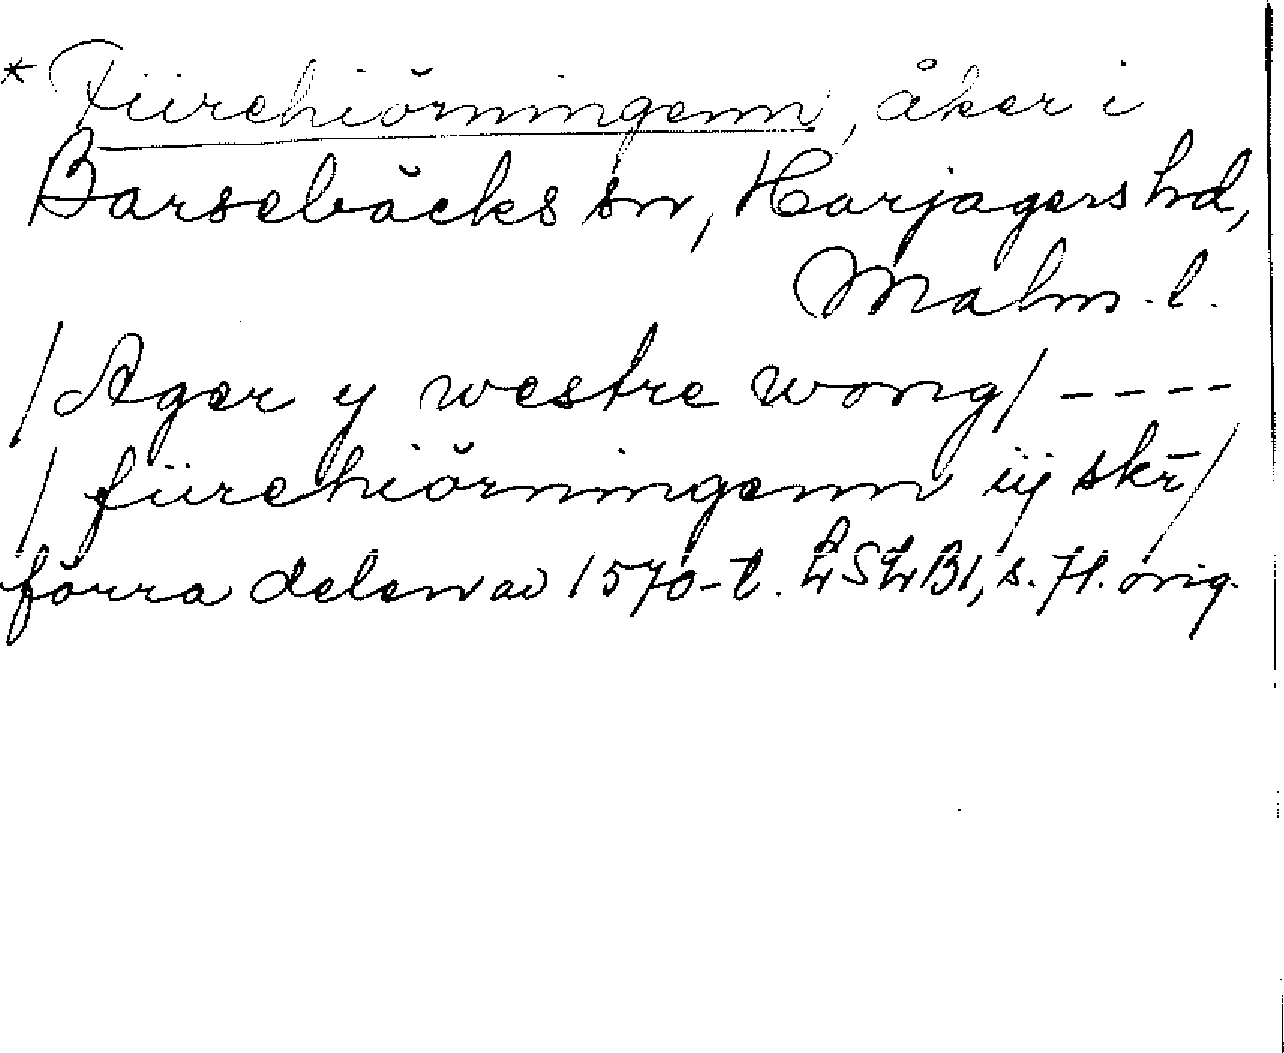 * Fiirehiörningenn, åker i
Barsebäcks sn, Harjagers hd,
Malm. l.
/Ager y westre wong/ ----
/ fiirehiörningenn iij skr̄/
förra delen av 1570-t. LSLB1, s. 71. orig.